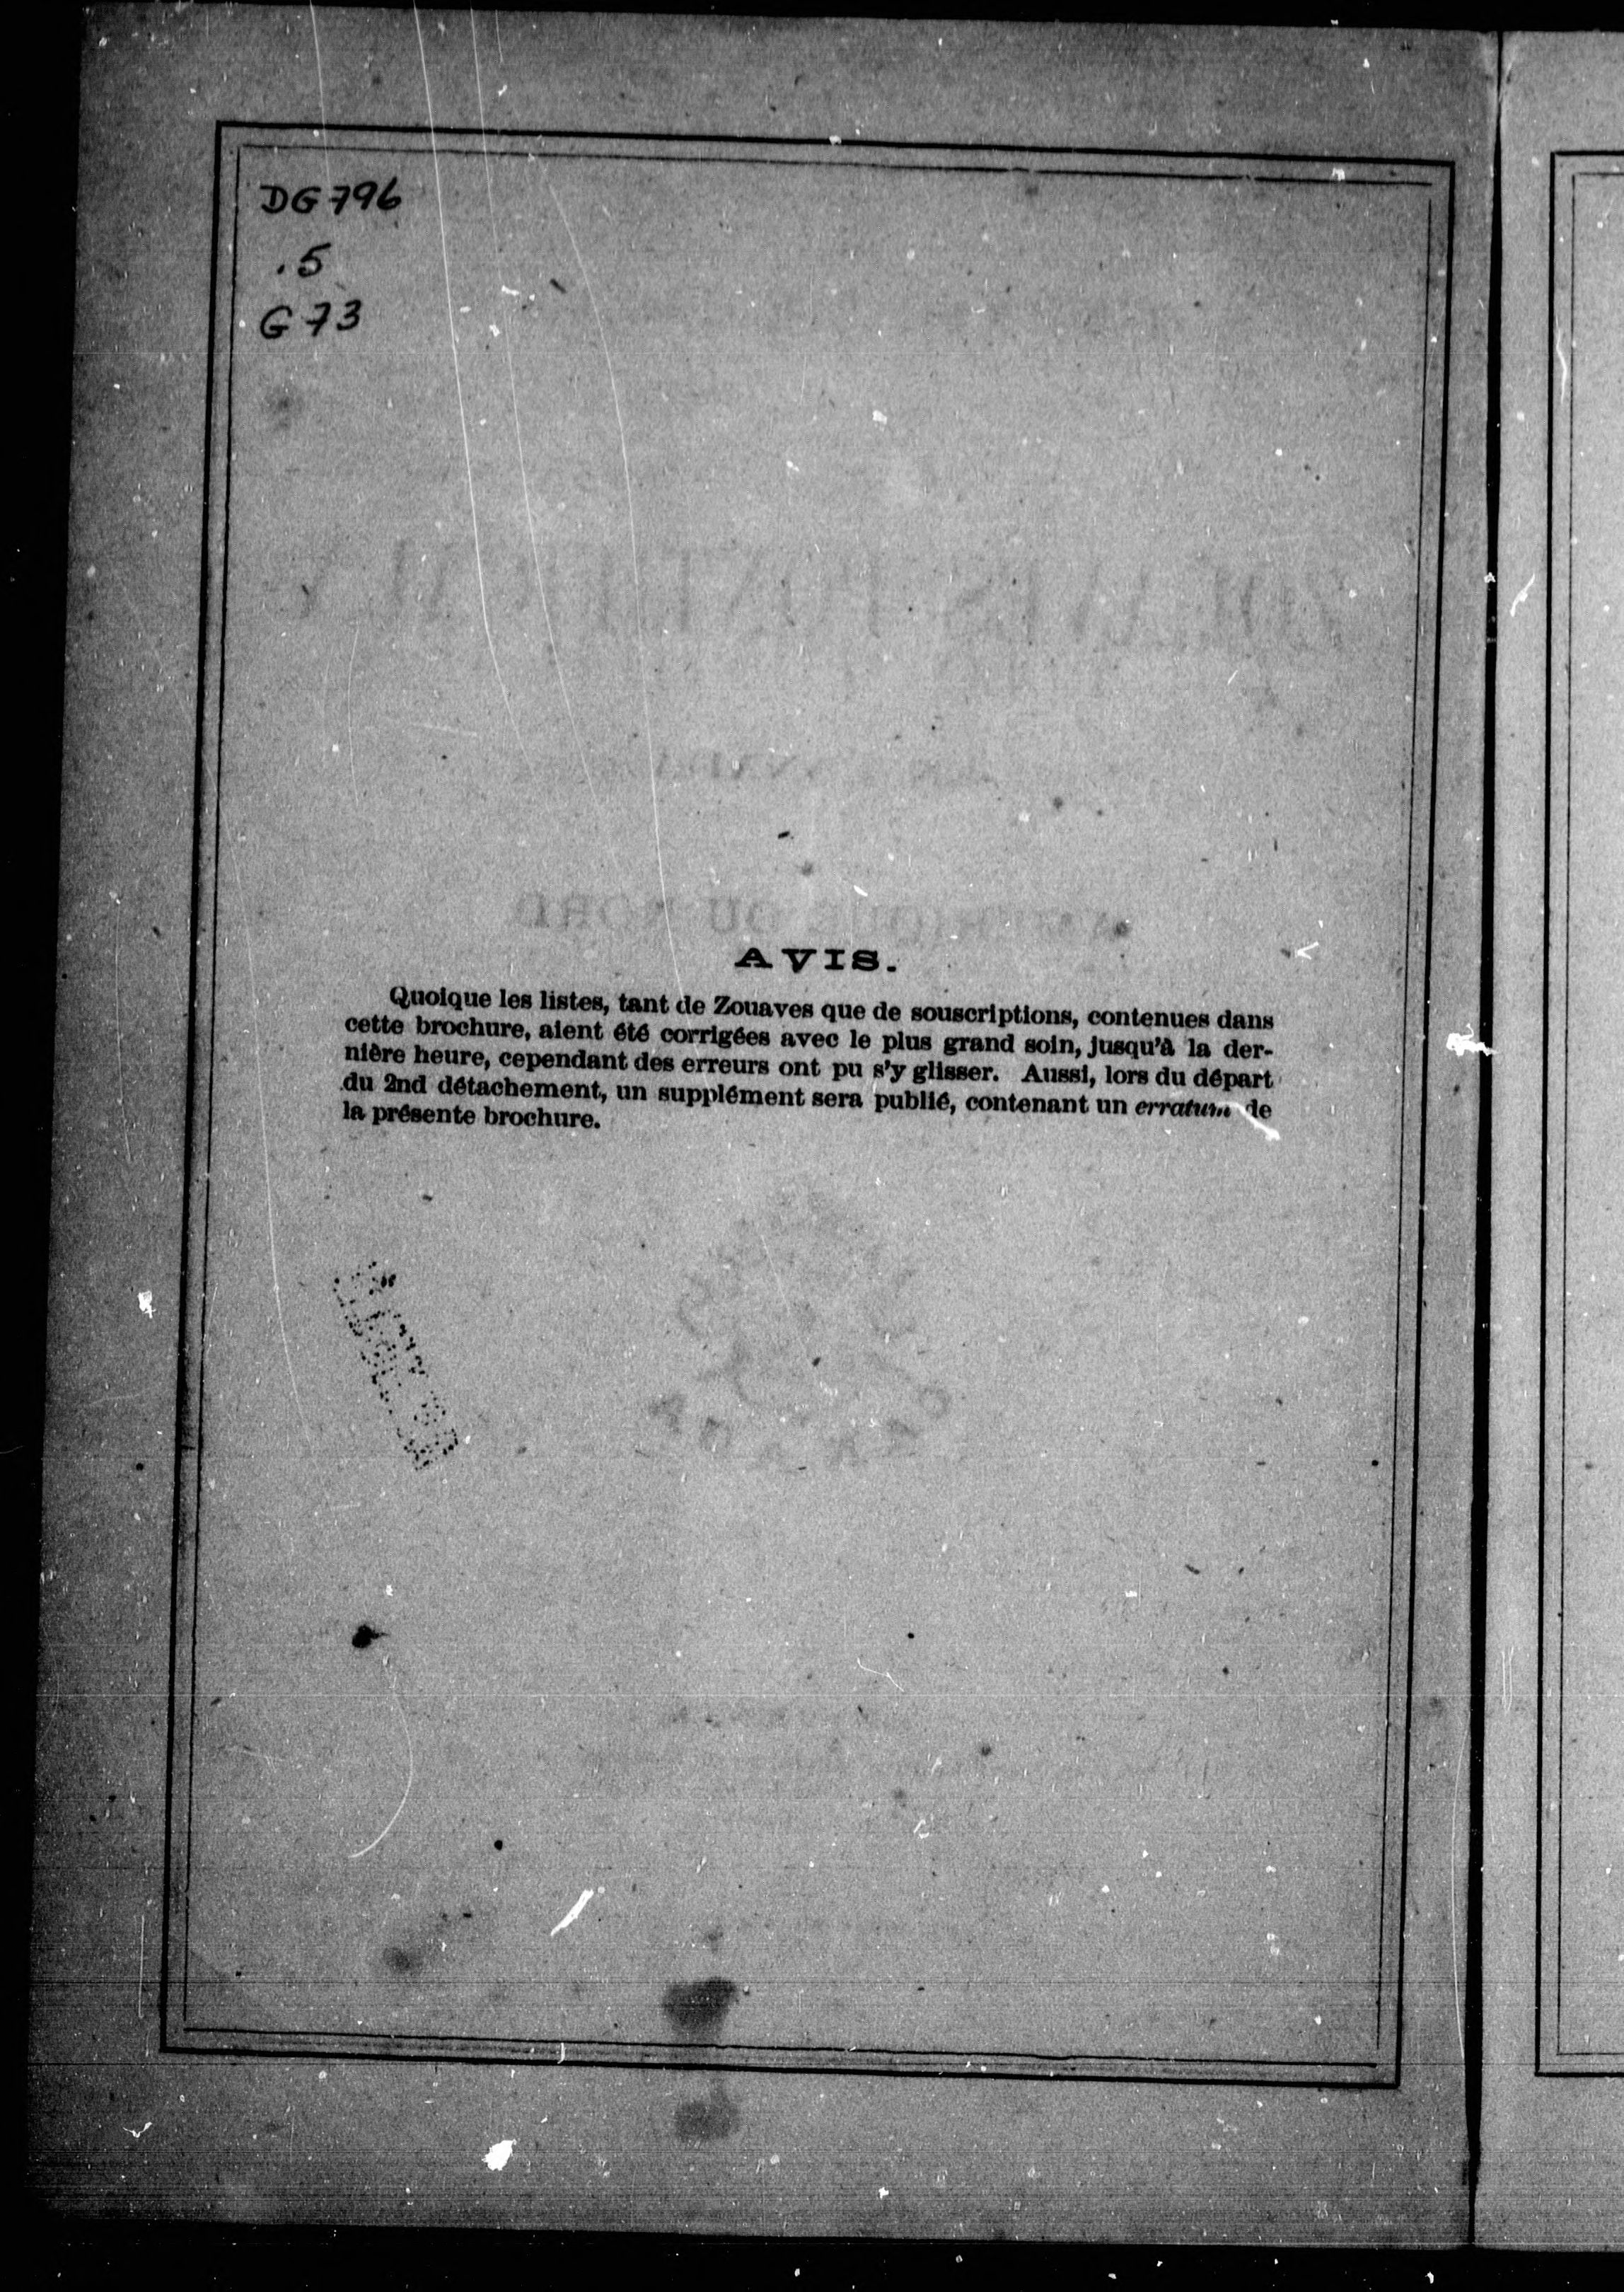 DG796
.5
G73
AVIS.
Quoique les listes, tant de Zouaves que de souscriptions, contenues dans
cette brochure, aient été corrigées avec le plus grand soin, jusqu'à la der-
nière heure, cependant des erreurs ont pu s'y glisser. Aussi, lors du départ
du 2nd détachement, un supplément sera publié, contenant un erratum de
la présente brochure.